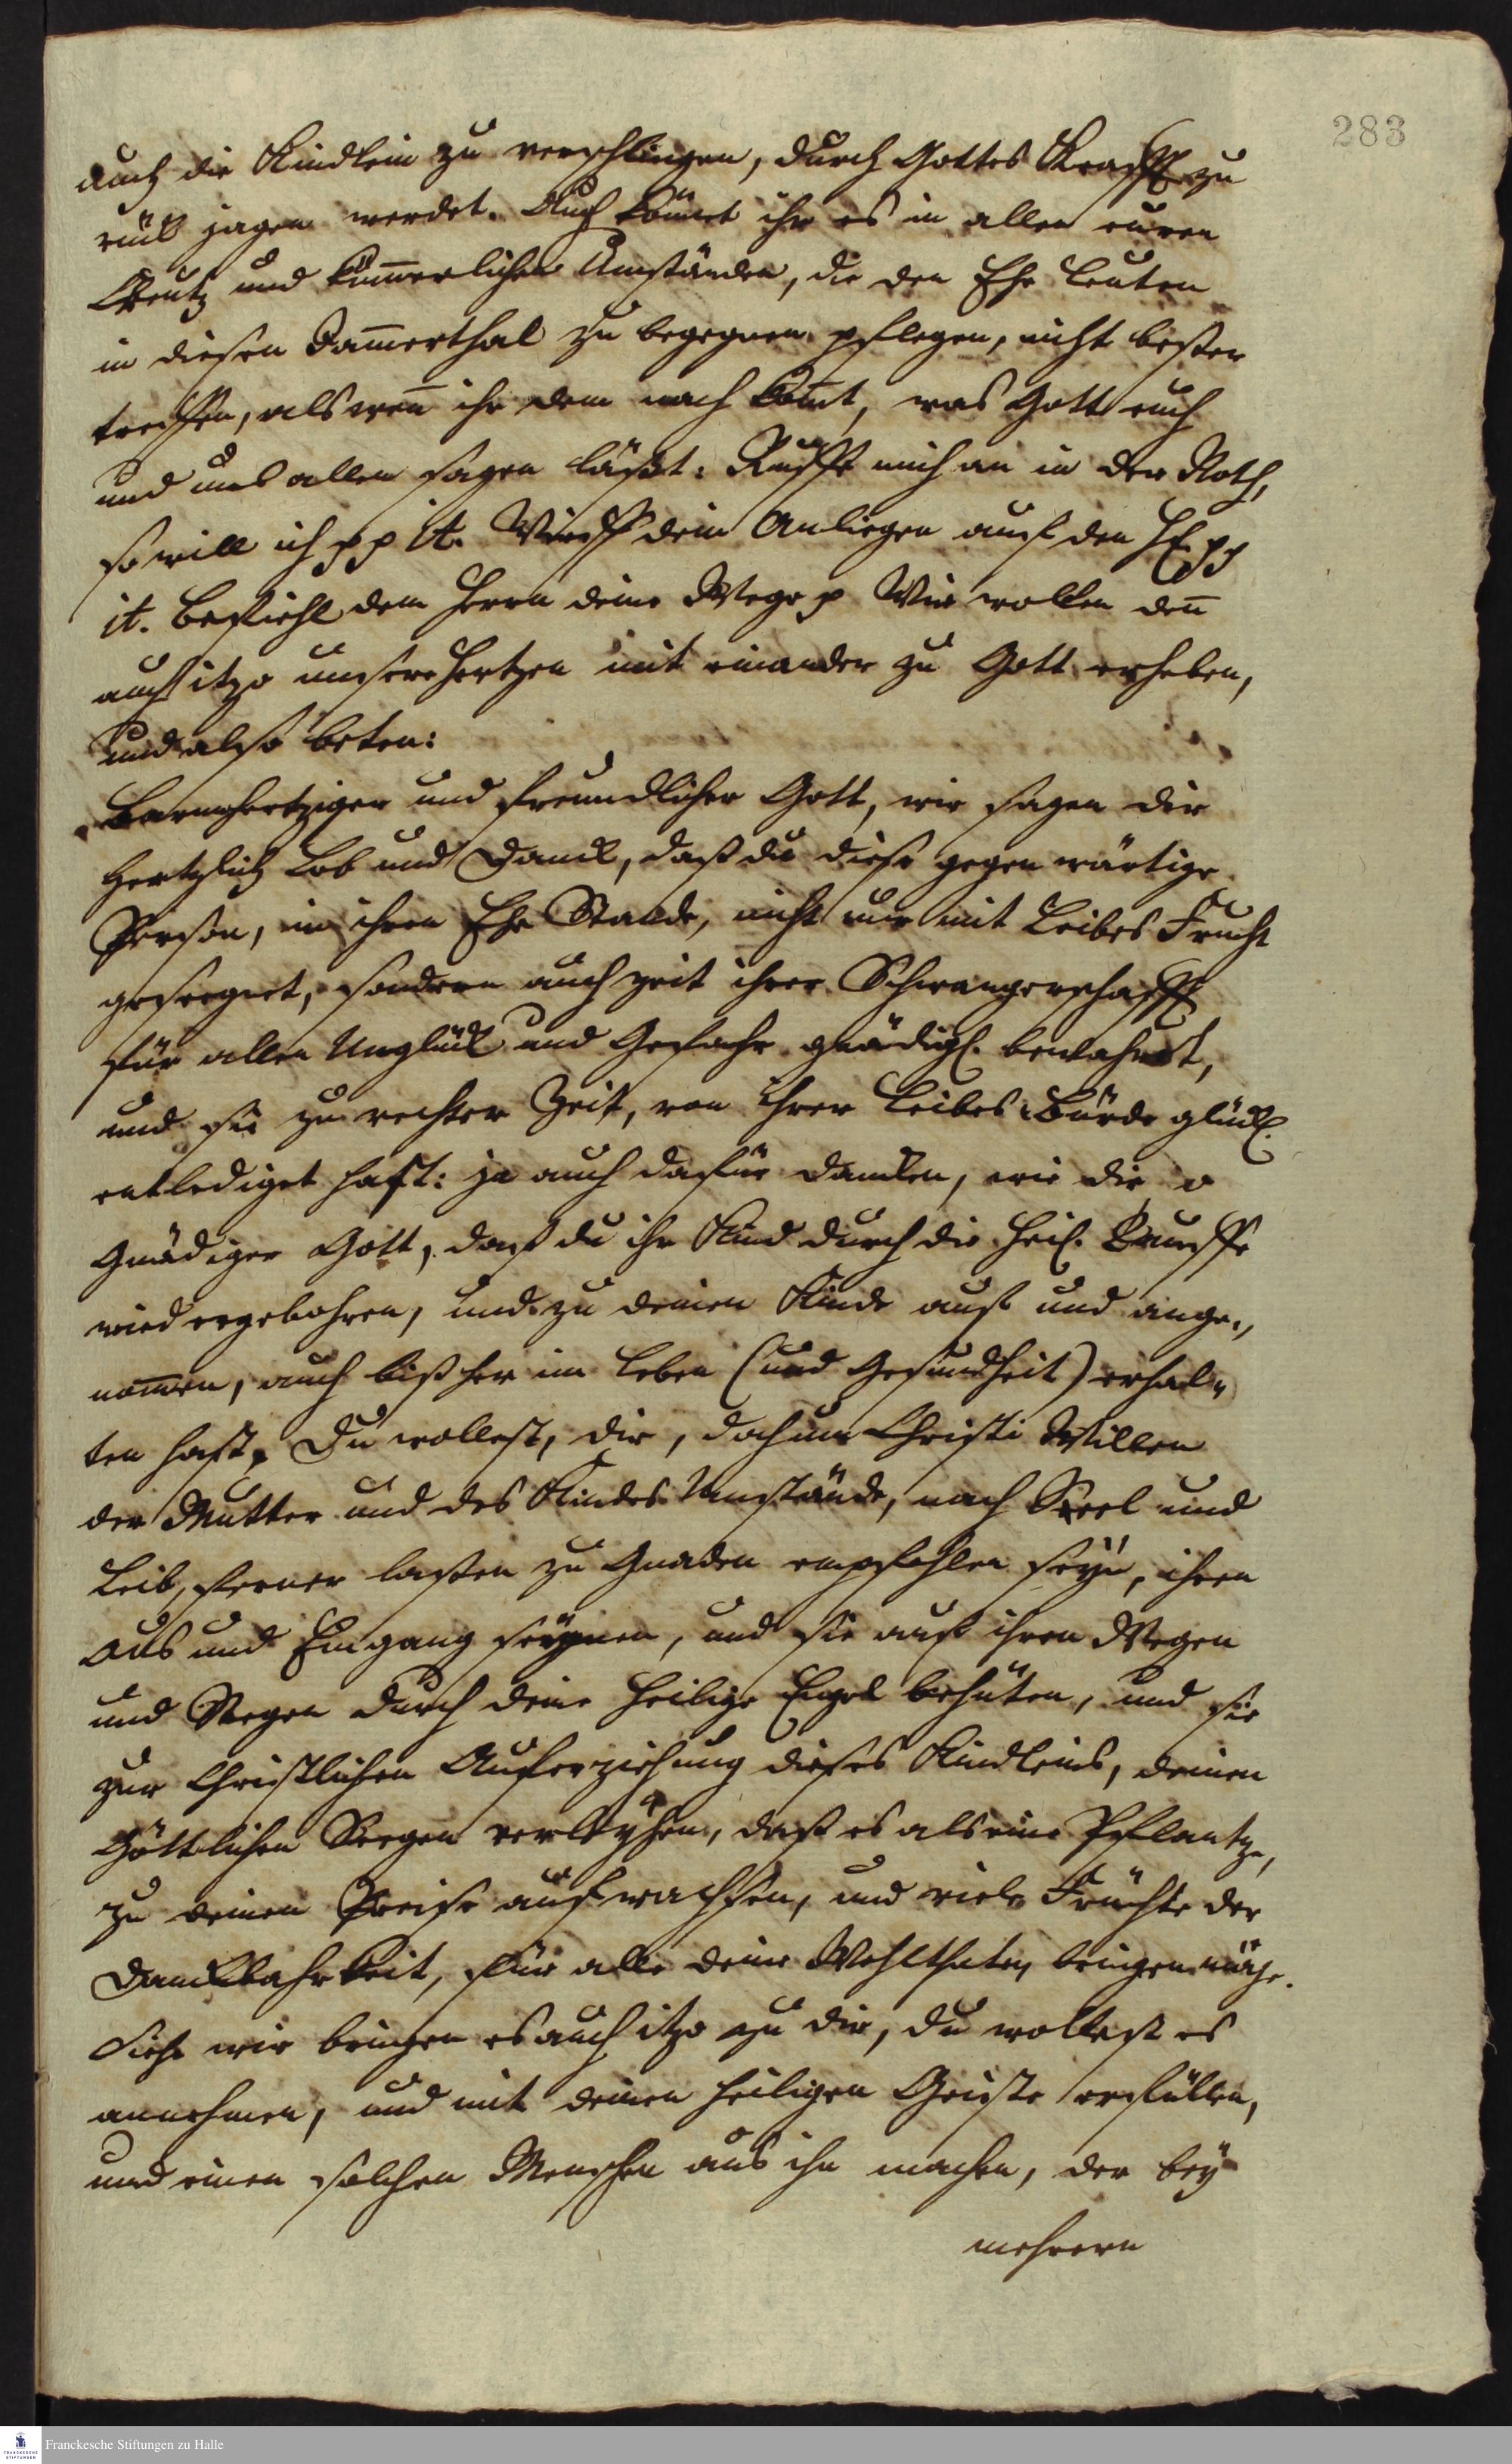 283
auch die Kindlein zu verschlingen, durch Gottes Krafft zu
rück jagen werdet. Auch könnet ihr es in allen euren
Creutz und kümerlichen Umständen, die den Ehe Leuten
in diesen Jamerthal zu begegnen pflegen, nicht besser
treffen, als wen̄ ihr dem nach komt, was Gott euch
und uns allen sagen läßet: Ruffe mich an in der Noth,
so will ich pp it. Wirff dein Anliegen auf den H. pp
it. Befiehl dem Herrn deine Wege p Wir wollen den̄
auch itzo unsere Hertzen mit einander zu Gott erheben,
und also beten:
Barmhertziger und freundlicher Gott, wir sagen dir
Hertzlich Lob und Danck, daß du diese gegen wärtige
Person, in ihren Ehe Stande, nicht nur mit Leibes Frucht
geseegnet, sondern auch zeit ihrer Schwangerschafft
für allen Unglück und Gefahr gnädigl. bewahret,
und sie zu rechter Zeit, von ihrer Leibes Bürde glückl.
entlediget hast: ja auch dafür dancken, wir dir, o
Gnädiger Gott, daß du ihr Kind durch die heil. Tauffe
wiedergebohren, und zu deinen Kinde auf und ange-,
nomen, auch bißher im Leben (und Gesundheit) erhal-
ten hast. Du wollest, dir, doch um Christi Willen
der Mutter und des Kindes Umstände, nach Seel und
Leib, ferner laßen zu Gnaden empfohlen seyn, ihren
Aus und Eingang seegnen, und sie auf ihren Wegen
und Stegen durch deine heilige Engel behüten, und sie
zur Christlichen Auferziehung dieses Kindleins, deinen
Göttlichen Seegen verleyhen, daß es als eine Pflantze,
zu deinen Preise aufwachsen, und viele Früchte der
Danckbahrkeit, für alle deine Wohlthaten, bringen möge.
Siehe wir bringen es auch itzo zu dir, du wollest es
annehmen, und mit deinen heiligen Geiste erfüllen,
und einen solchen Menschen aus ihn machen, der bey
mehrern
Franckesche Stiftungen zu Halle